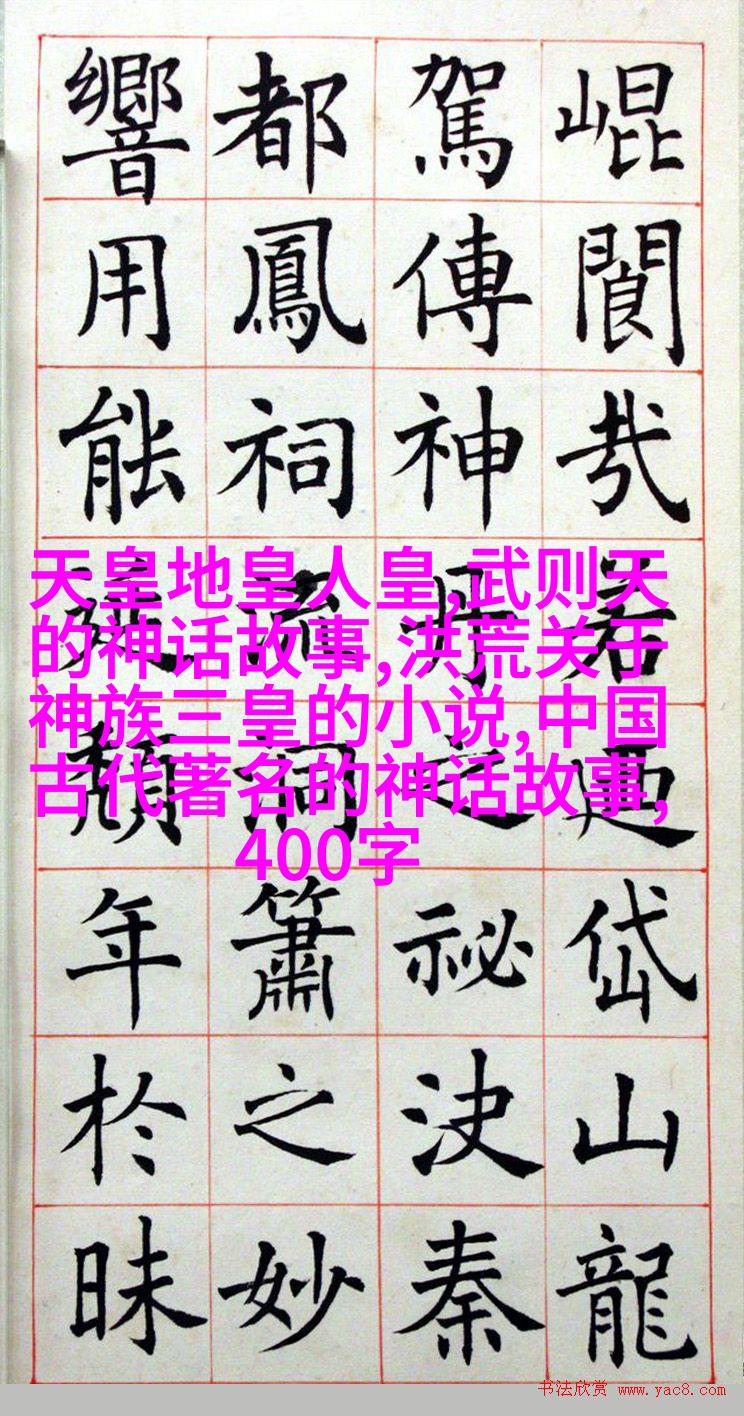 崐閬哉若廼岱山龍
駕傳神丹之祕決秦
都鳳祠流洞簫之妙
響用能頹年於昧
天皇地皇人皇,武则天
的神话故事,洪荒关于
神族三皇的小说,中国
古代著名的神话故事,
400字
书法欣赏 www.yac8.com